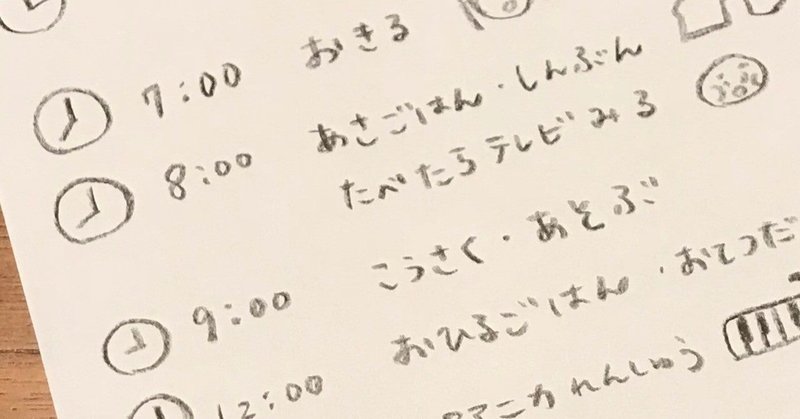 7:00 おきる
8:00 あさごはん・しんぶん
たべたらテレビみる
9:00 こうさく・あそぶ
12:00 おひるごはん・おてつだ
ピアニカれんしゅう